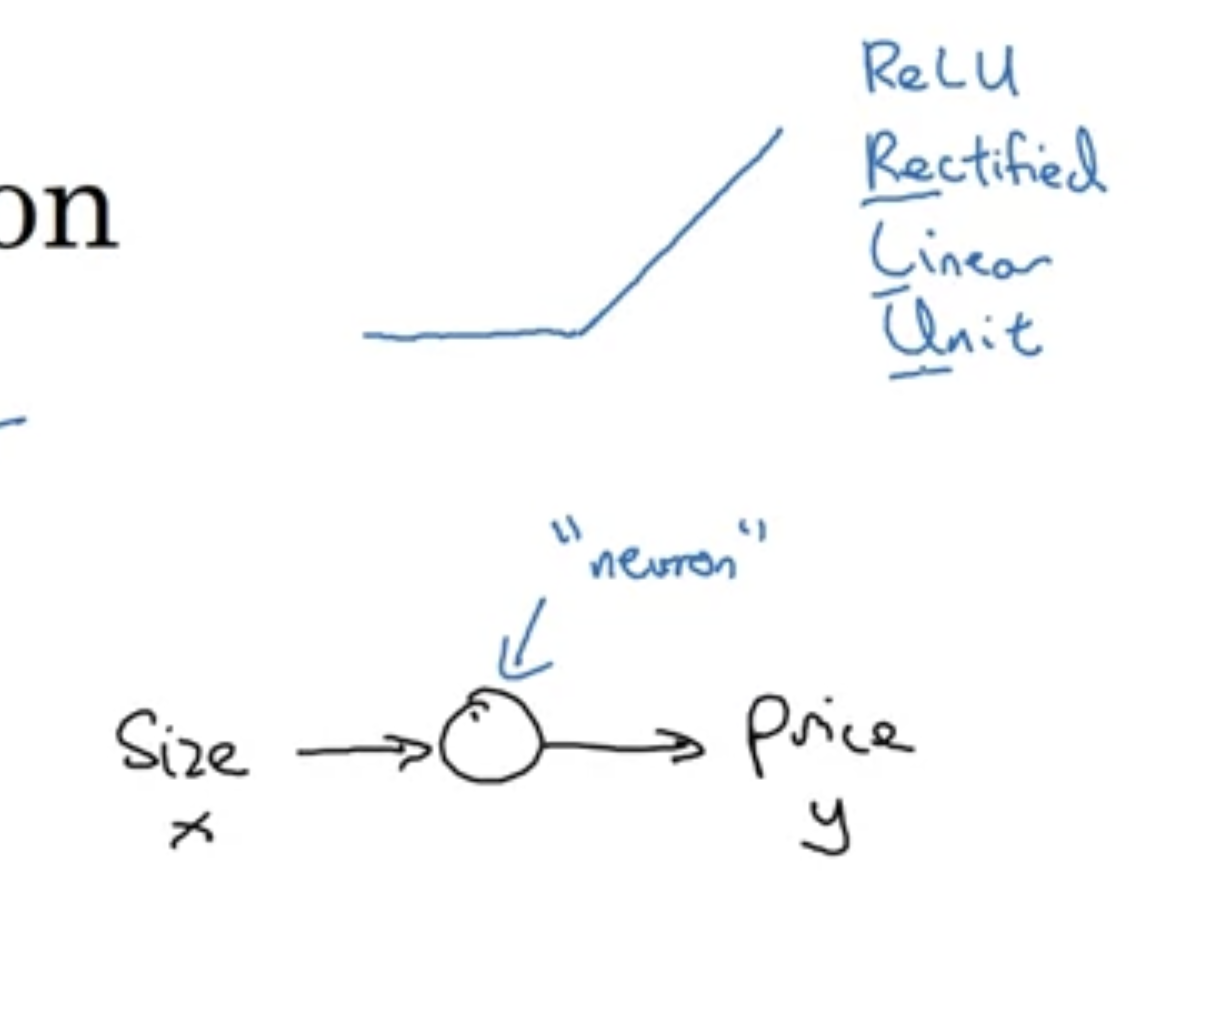 ReLU
Rectified
on
Linear
Unit
"neuron"
Size
Price
x
y